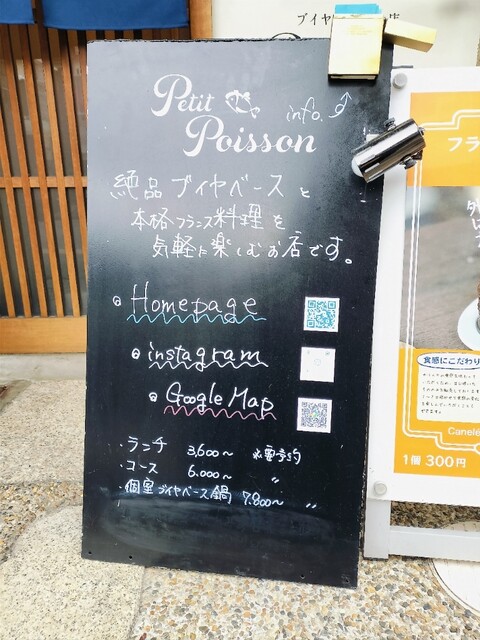 Petit
Poisson
info.
絶品ブイヤベースと
本格フランス料理を
気軽に楽しむお店です。
Homepage
instagram
Google Map
・ランチ 3,600〜 必要予約
・コース 6.000〜 〃
・個室ブイヤベース鍋 7.800〜 〃
ブイヤ
店
フラ
食感にこだわり
Canelé
1個 300円